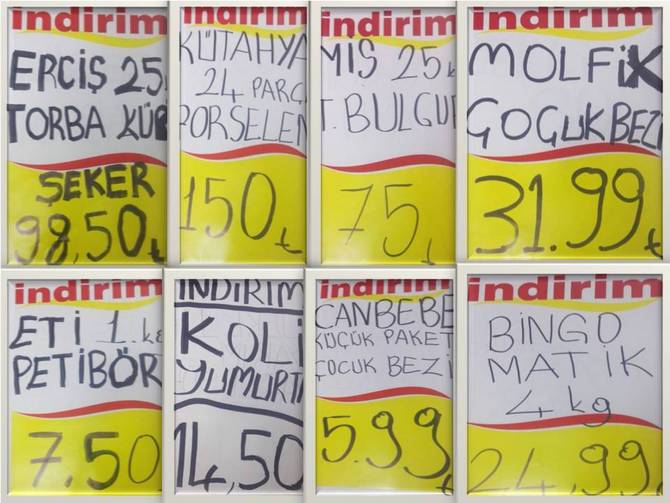 indirim
ERCİŞ 25
TORBA KÜP
ŞEKER
98,50₺
indirim
KÜTAHYA
24 PARÇA
PORSELEN
150₺
indirim
MİS 25 k
T. BULGUR
75₺
indirim
MOLFİX
ÇOÇUK BEZİ
31.99₺
indirim
ETİ 1.kg
PETİBÖR
7.50
İNDİRİM
KOLİ
YUMURTA
14,50
indirim
CANBEBE
KÜÇÜK PAKET
ÇOCUK BEZİ
5.99₺
indirim
BİNGO
MATİK
4 kg
24,99₺